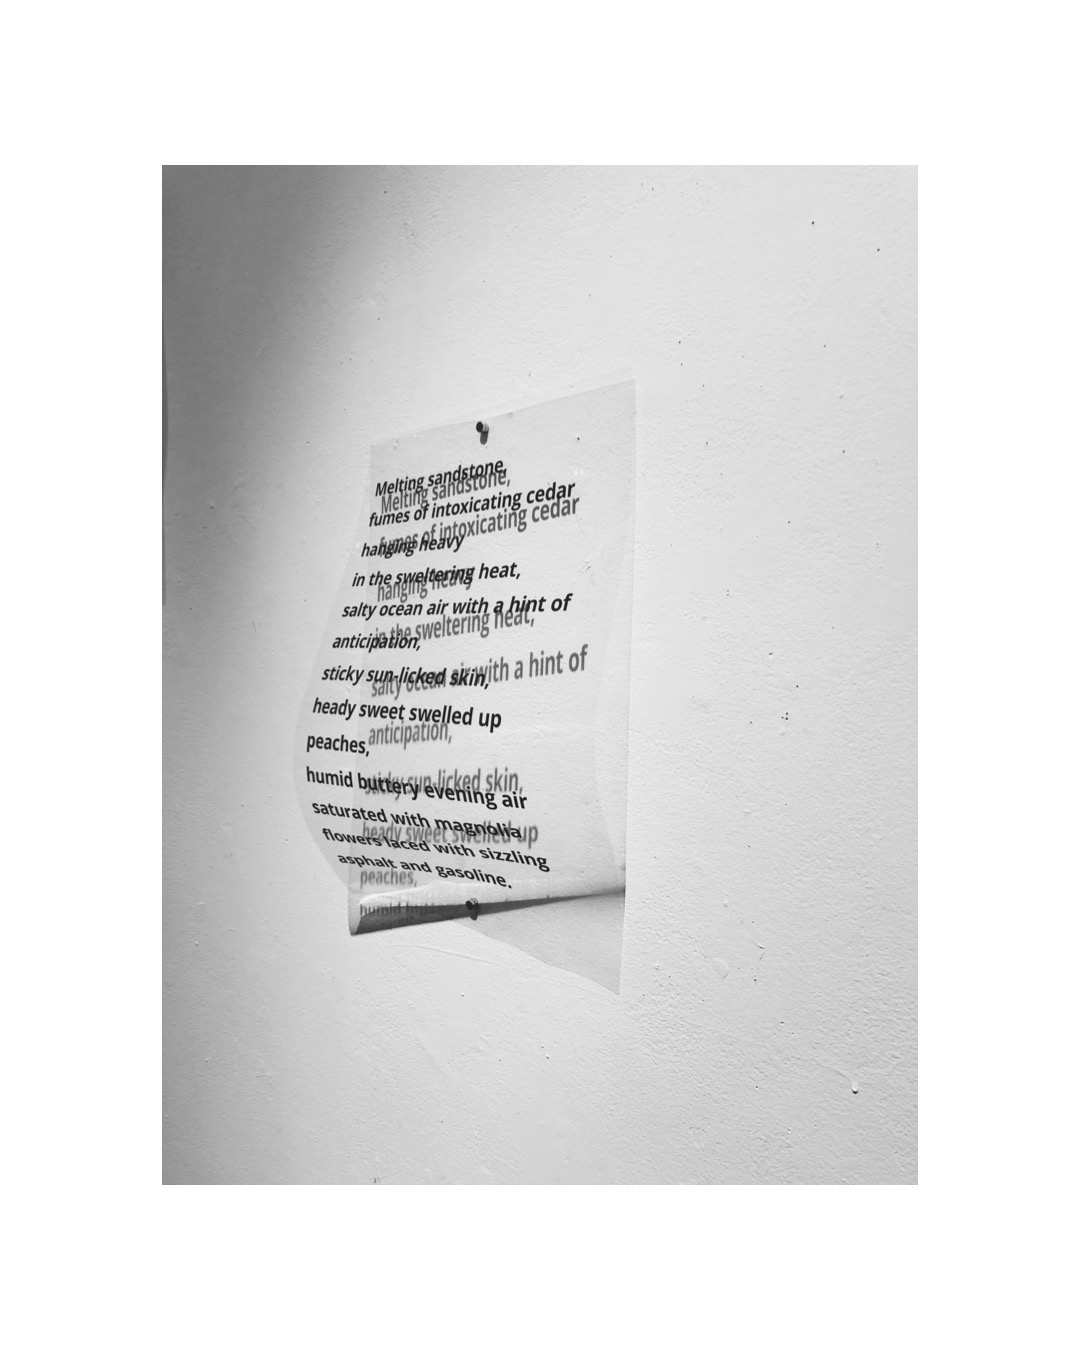 Melting sandstone,
fumes of intoxicating cedar
hanging heavy
in the sweltering heat,
salty ocean air with a hint of
anticipation,
sticky sun-licked skin,
heady sweet swelled up
peaches,
humid buttery evening air
saturated with magnolia
flowers laced with sizzling
asphalt and gasoline.